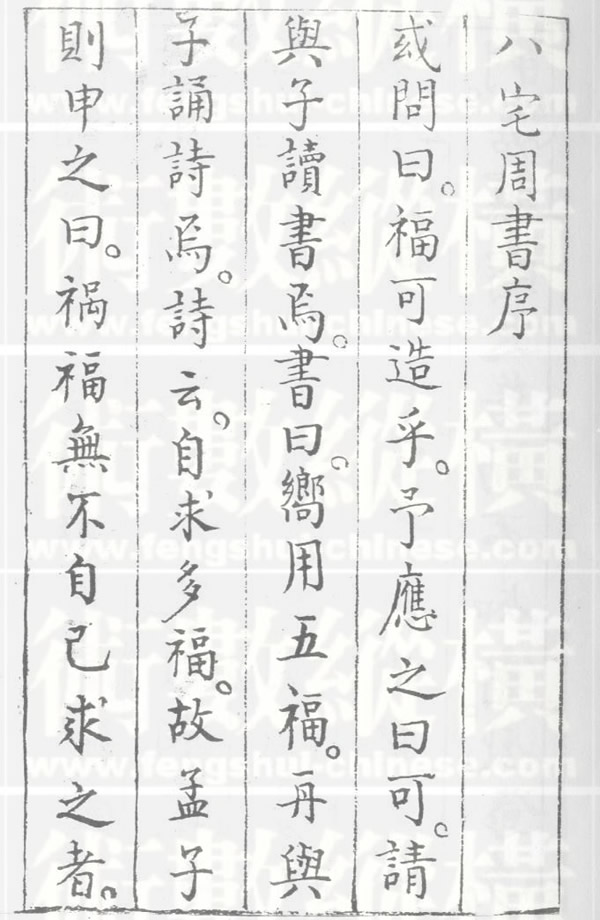 八宅周書序
或問曰。福可造乎。予應之曰可。請
與子讀書焉。書曰。嚮用五福。再與
子誦詩焉。詩云。自求多福。故孟子
則申之曰。禍福無不自己求之者。
術數縱橫
www.fengshui-chinese.com
術數縱橫
www.fengshui-chinese.com
術數縱橫
www.fengshui-chinese.com
術數縱橫
www.fengshui-chinese.com
術數縱橫